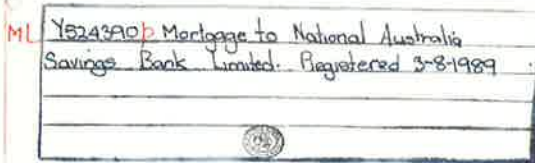 ML Y524390p Mortgage to National Australia
Savings Bank Limited. Registered 3-8-1989